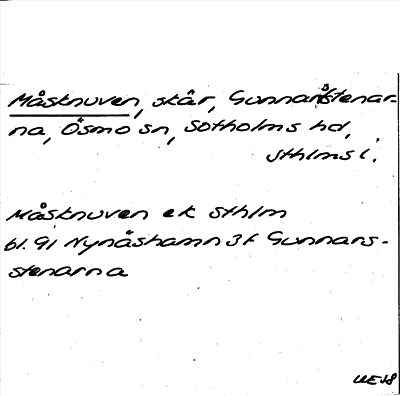 Måsknuven, skär, Gunnarsstenar-
na, Ösmo sn, Sotholms hd,
Sthlms l.
Måsknuven ek Sthlm
61.91 Nynäshamn 3f Gunnars-
stenarna